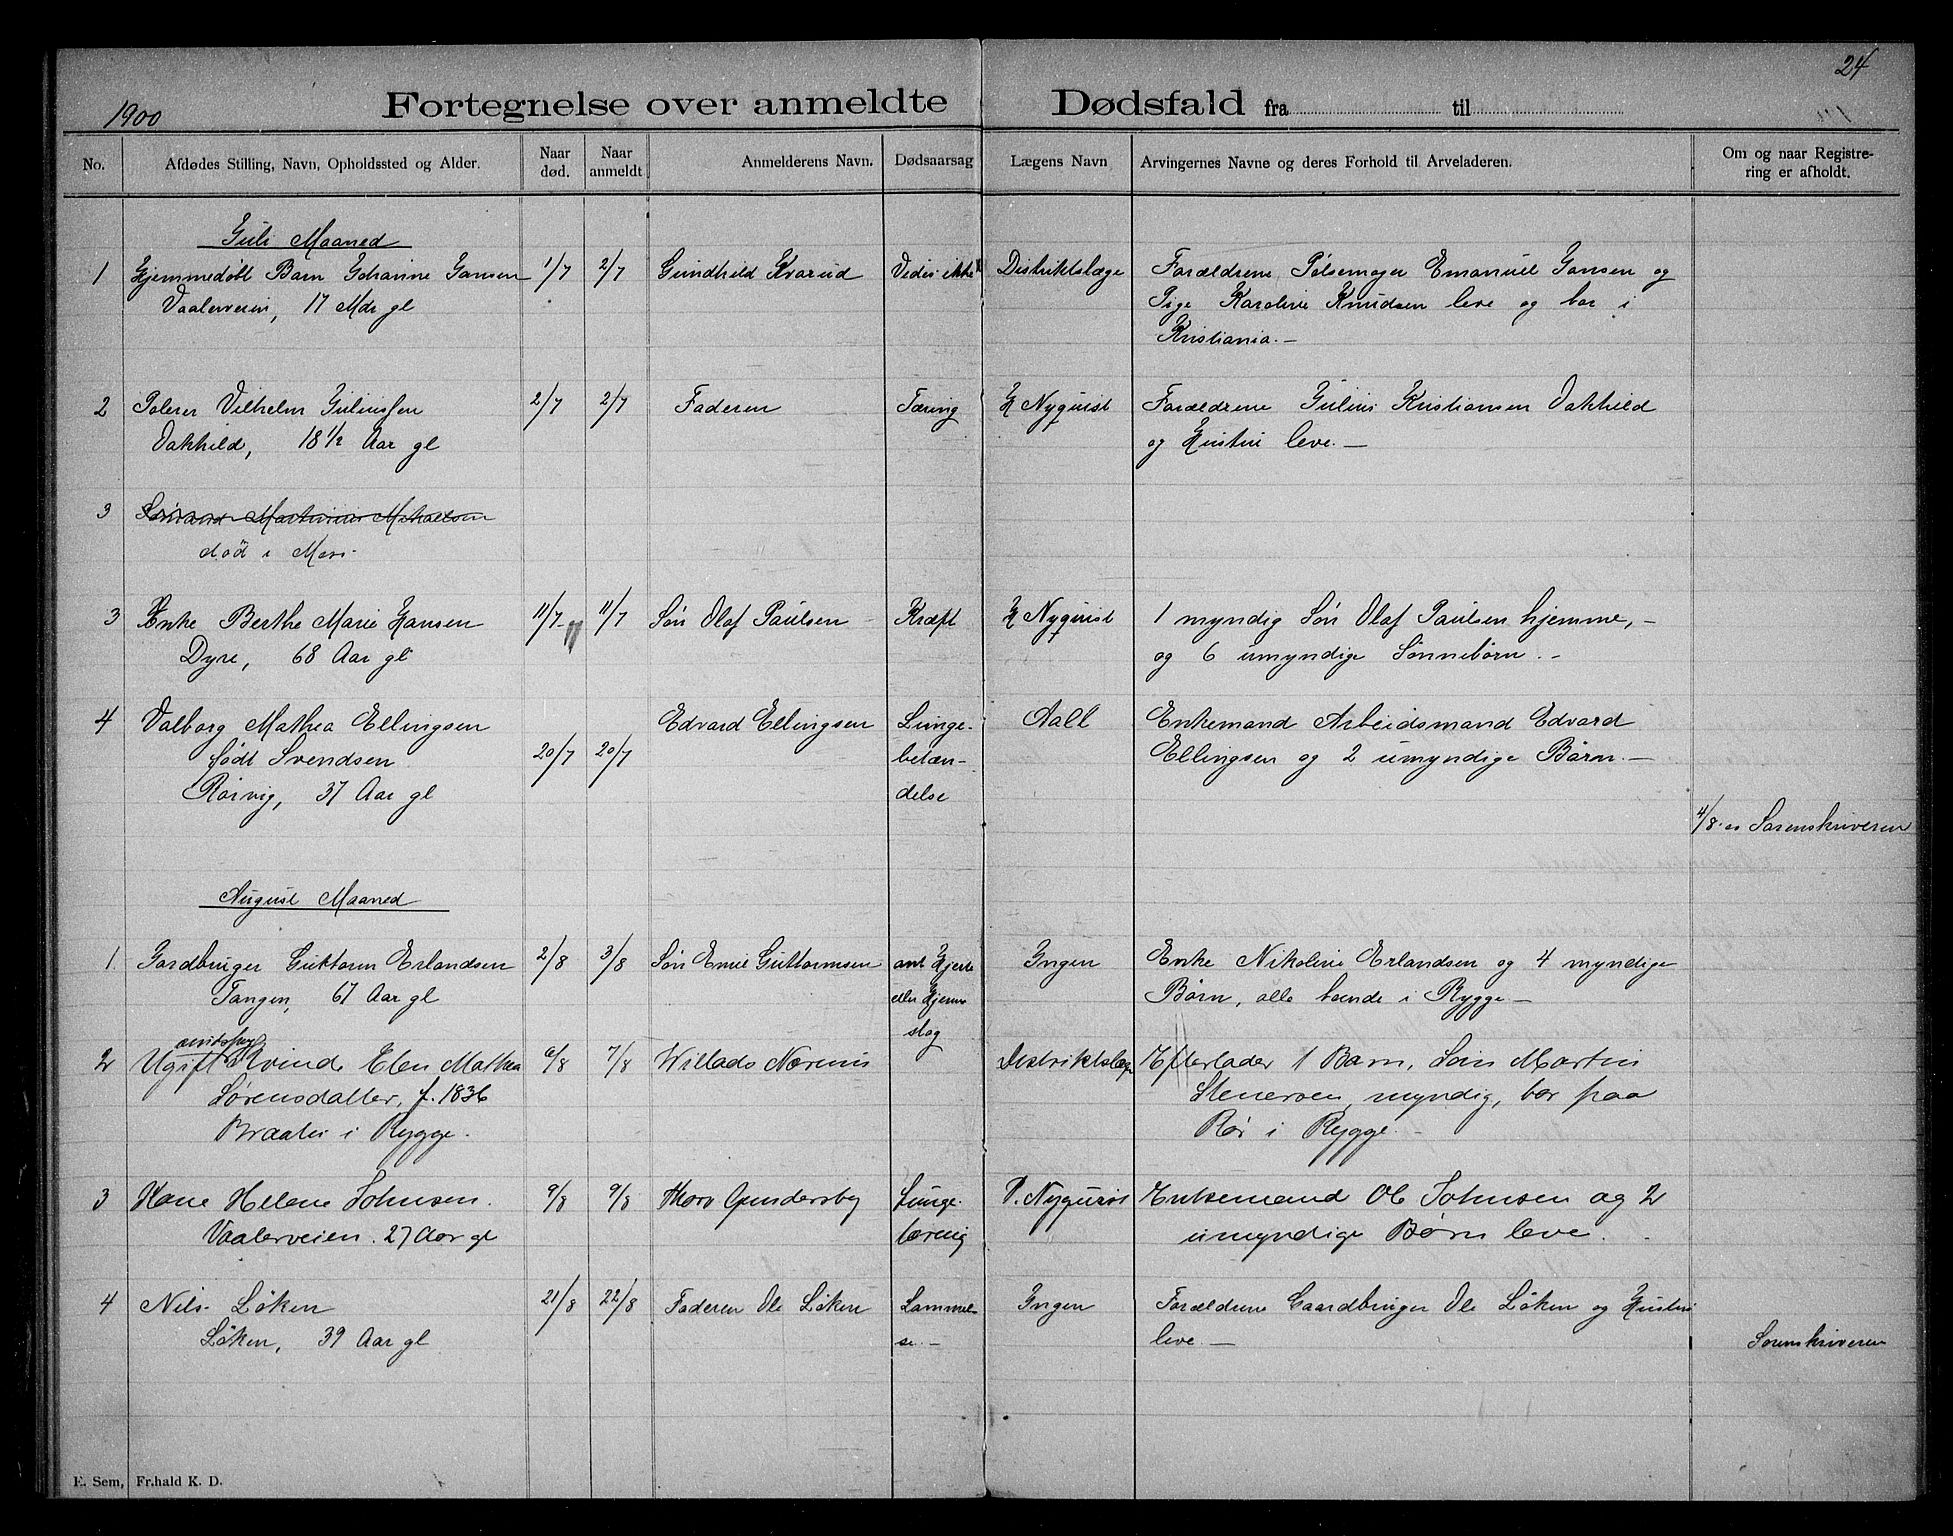 24
1900 Fortegnelse over anmeldte Dødsfald fra til
No. Afdødes Stilling, Navn, Opholdssted og Alder. Naar død. Naar anmeldt Anmelderens Navn. Dødsaarsag Lægens Navn Arvingernes Navne og deres Forhold til Arveladeren. Om og naar Registrering er afholdt.
Juli Maaned
1 Hjemmedøbt Barn Johanne Jansen 1/7 2/7 Gundhild Kvarud Vides ikke Distriktslæge Forældrene Pølsemager Emanuel Jansen og
Vaalerveien, 17 Mdr gl Pige Karoline Knudsen leve og bor i
Kristiania. —
2 Polerer Vilhelm Juliussen 2/7 2/7 Faderen Tæring H Nyquist Forældrene Julius Kristiansen Vakhild
Vakhild, 18 1/2 Aar gl og Hustru leve. —
3 Martinius
død i Mai.
3 Enke Berthe Marie Hansen 11/7 11/7 Søn Olaf Paulsen Kræft H Nyquist 1 myndig Søn Olaf Paulsen hjemme, —
Dyre, 68 Aar gl og 6 umyndige Sønnebørn. —
4 Valborg Mathea Ellingsen Edvard Ellingsen Lunge- Aall Enkemand Arbeidsmand Edvard
født Svendsen 20/7 20/7 betæn- Ellingsen og 2 umyndige Børn. —
Rørvig, 37 Aar gl delse
4/8 00 Sorenskriveren
August Maaned
1. Gardbruger Guttorm Erlandsen 2/8 3/8 Søn Emil Guttormsen ant Hjerte Ingen Enke Nikoline Erlandsen og 4 myndige
Tangen, 67 Aar gl eller Hjerne Børn, alle boende i Rygge —
slag
2 Ugift Kvinde Elen Mathea 6/8 7/8 Willads Nærenis Distriktslæge Efterlader 1 Barn, Søn Martin
Sørensdatter, f. 1836 Stenersen, myndig, bor paa
Braaten i Rygge. Rør i Rygge. —
3 Karie Helene Johnsen. 9/8 9/8 Thorv Gundersby Lunge- P. Nyquist Enkemand Ole Johnsen og 2
Vaalerveien. 27 Aar gl tæring umyndige Børn leve.
4 Nils Løken 21/8 22/8 Faderen Ole Løken Lammel- Ingen Forældrene Gaardbruger Ole Løken og Hustru
Løken, 39 Aar gl se. — leve — Sorenskriveren
E. Sem, Fr.hald K. D.